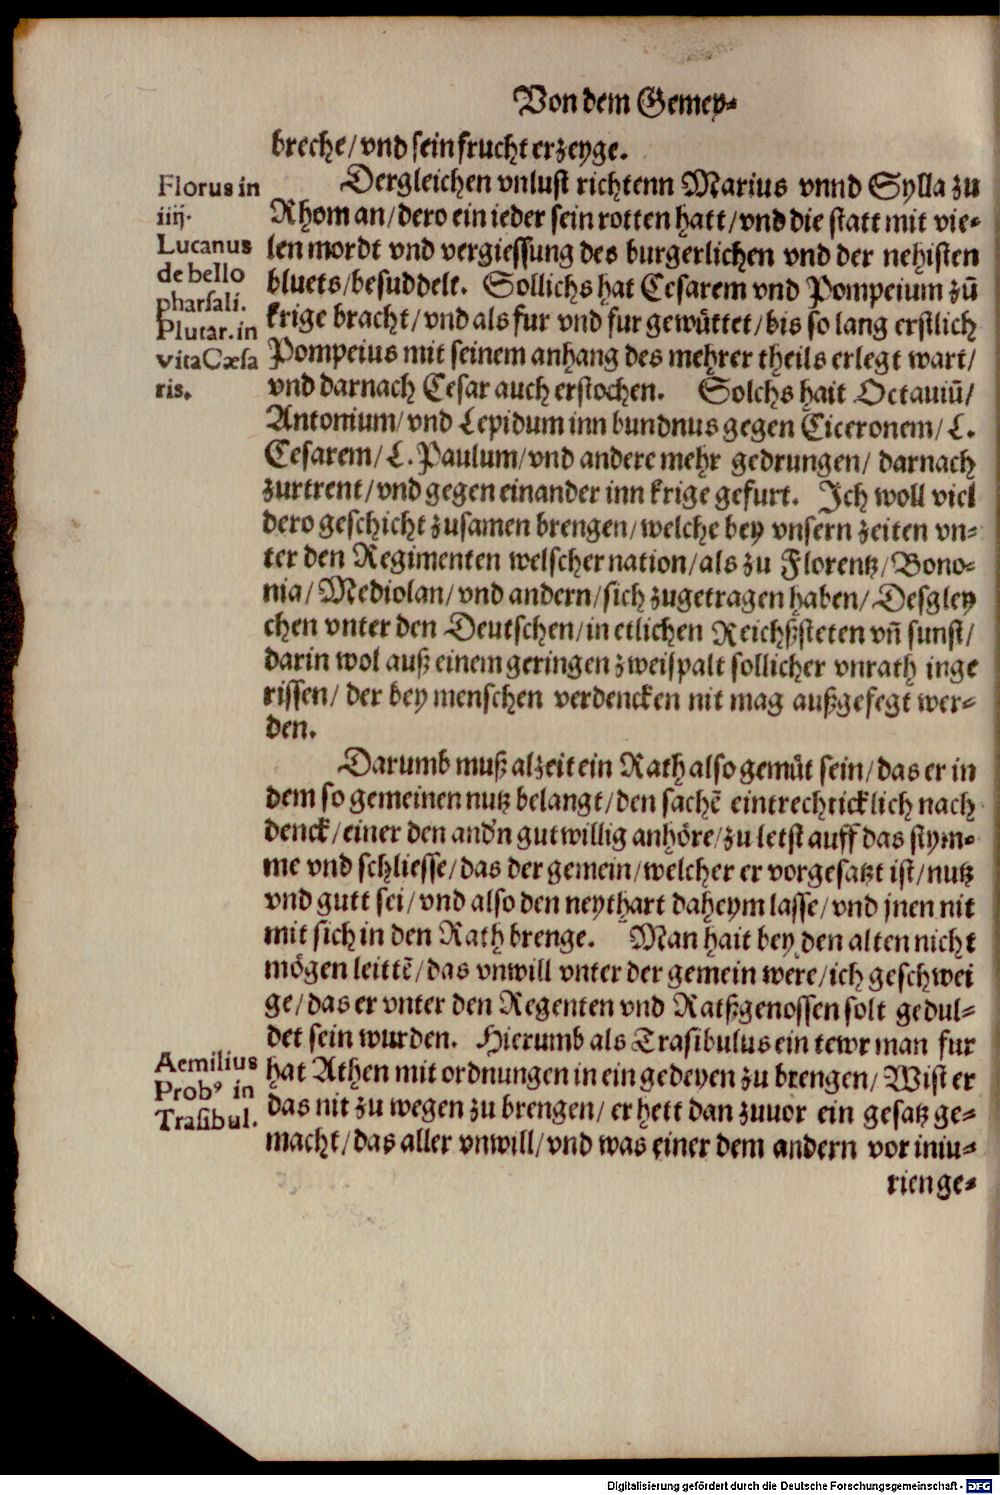 Von dem Gemey⸗
breche/ vnd sein frucht erzeyge.
Dergleichen vnlust richtenn Marius vnnd Sylla zu
Rhom an/ dero ein ieder sein rotten hatt/ vnd die statt mit vie⸗
len mordt vnd vergiessung des burgerlichen vnd der nehisten
bluets/ besuddelt. Sollichs hat Cesarem vnd Pompeium zū
krige bracht/ vnd als fur vnd fur gewüttet/ bis so lang erstlich
Pompeius mit seinem anhang des mehrer theils erlegt wart/
vnd darnach Cesar auch erstochen. Solchs hait Octauiū/
Antonium/ vnd Lepidum inn bundnus gegen Ciceronem/ L.
Cesarem/ L. Paulum/ vnd andere mehr gedrungen/ darnach
zurtrent/ vnd gegen einander inn krige gefurt. Ich woll viel
dero geschicht zusamen brengen/ welche bey vnsern zeiten vn⸗
ter den Regimenten welscher nation/ als zu Florentz/ Bono⸗
nia/ Mediolan/ vnd andern/ sich zugetragen haben/ Desgley
chen vnter den Deutschen/ in etlichen Reichßsteten vñ sunst/
darin wol auß einem geringen zweispalt sollicher vnrath inge
rissen/ der bey menschen verdencken nit mag außgefegt wer⸗
den.
Darumb muß alzeit ein Rath also gemüt sein/ das er in
dem so gemeinen nutz belangt/ den sachē eintrechticklich nach
denck/ einer den andn gutwillig anhöre/ zu letst auff das stym⸗
me vnd schliesse/ das der gemein/ welcher er vorgesatzt ist/ nutz
vnd gutt sei/ vnd also den neythart daheym lasse/ vnd jnen nit
mit sich in den Rath brenge. Man hait bey den alten nicht
mögen leittē/ das vnwill vnter der gemein were/ ich geschwei
ge/ das er vnter den Regenten vnd Ratßgenossen solt gedul⸗
det sein wurden. Hierumb als Trasibulus ein tewr man fur
hat Athen mit ordnungen in ein gedeyen zu brengen/ Wist er
das nit zu wegen zu brengen/ er hett dan zuuor ein gesatz ge⸗
macht/ das aller vnwill/ vnd was einer dem andern vor iniu⸗
rien ge⸗
Florus in
iiij.
Lucanus
de bello
pharsali.
Plutar. in
vita Cæsa
ris.
Aemilius
Probꝰ in
Trasibul.
Digitalisierung gefördert durch die Deutsche Forschungsgemeinschaft - DFG